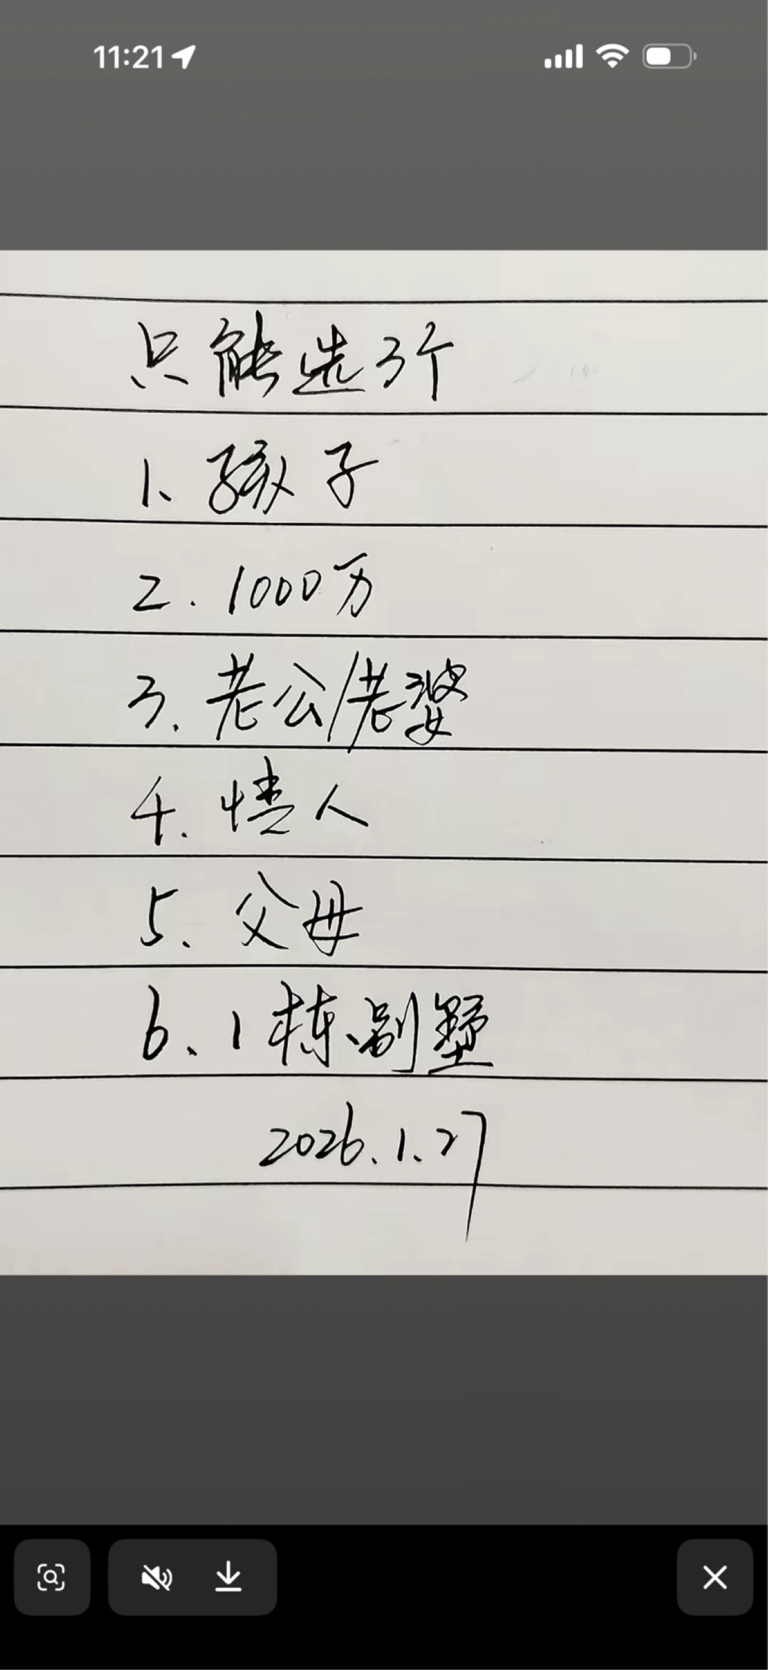 11:21
只能选3个
1、孩子
2.1000万
3.老公/老婆
4.情人
5.父母
6、1栋别墅
2026.1.27